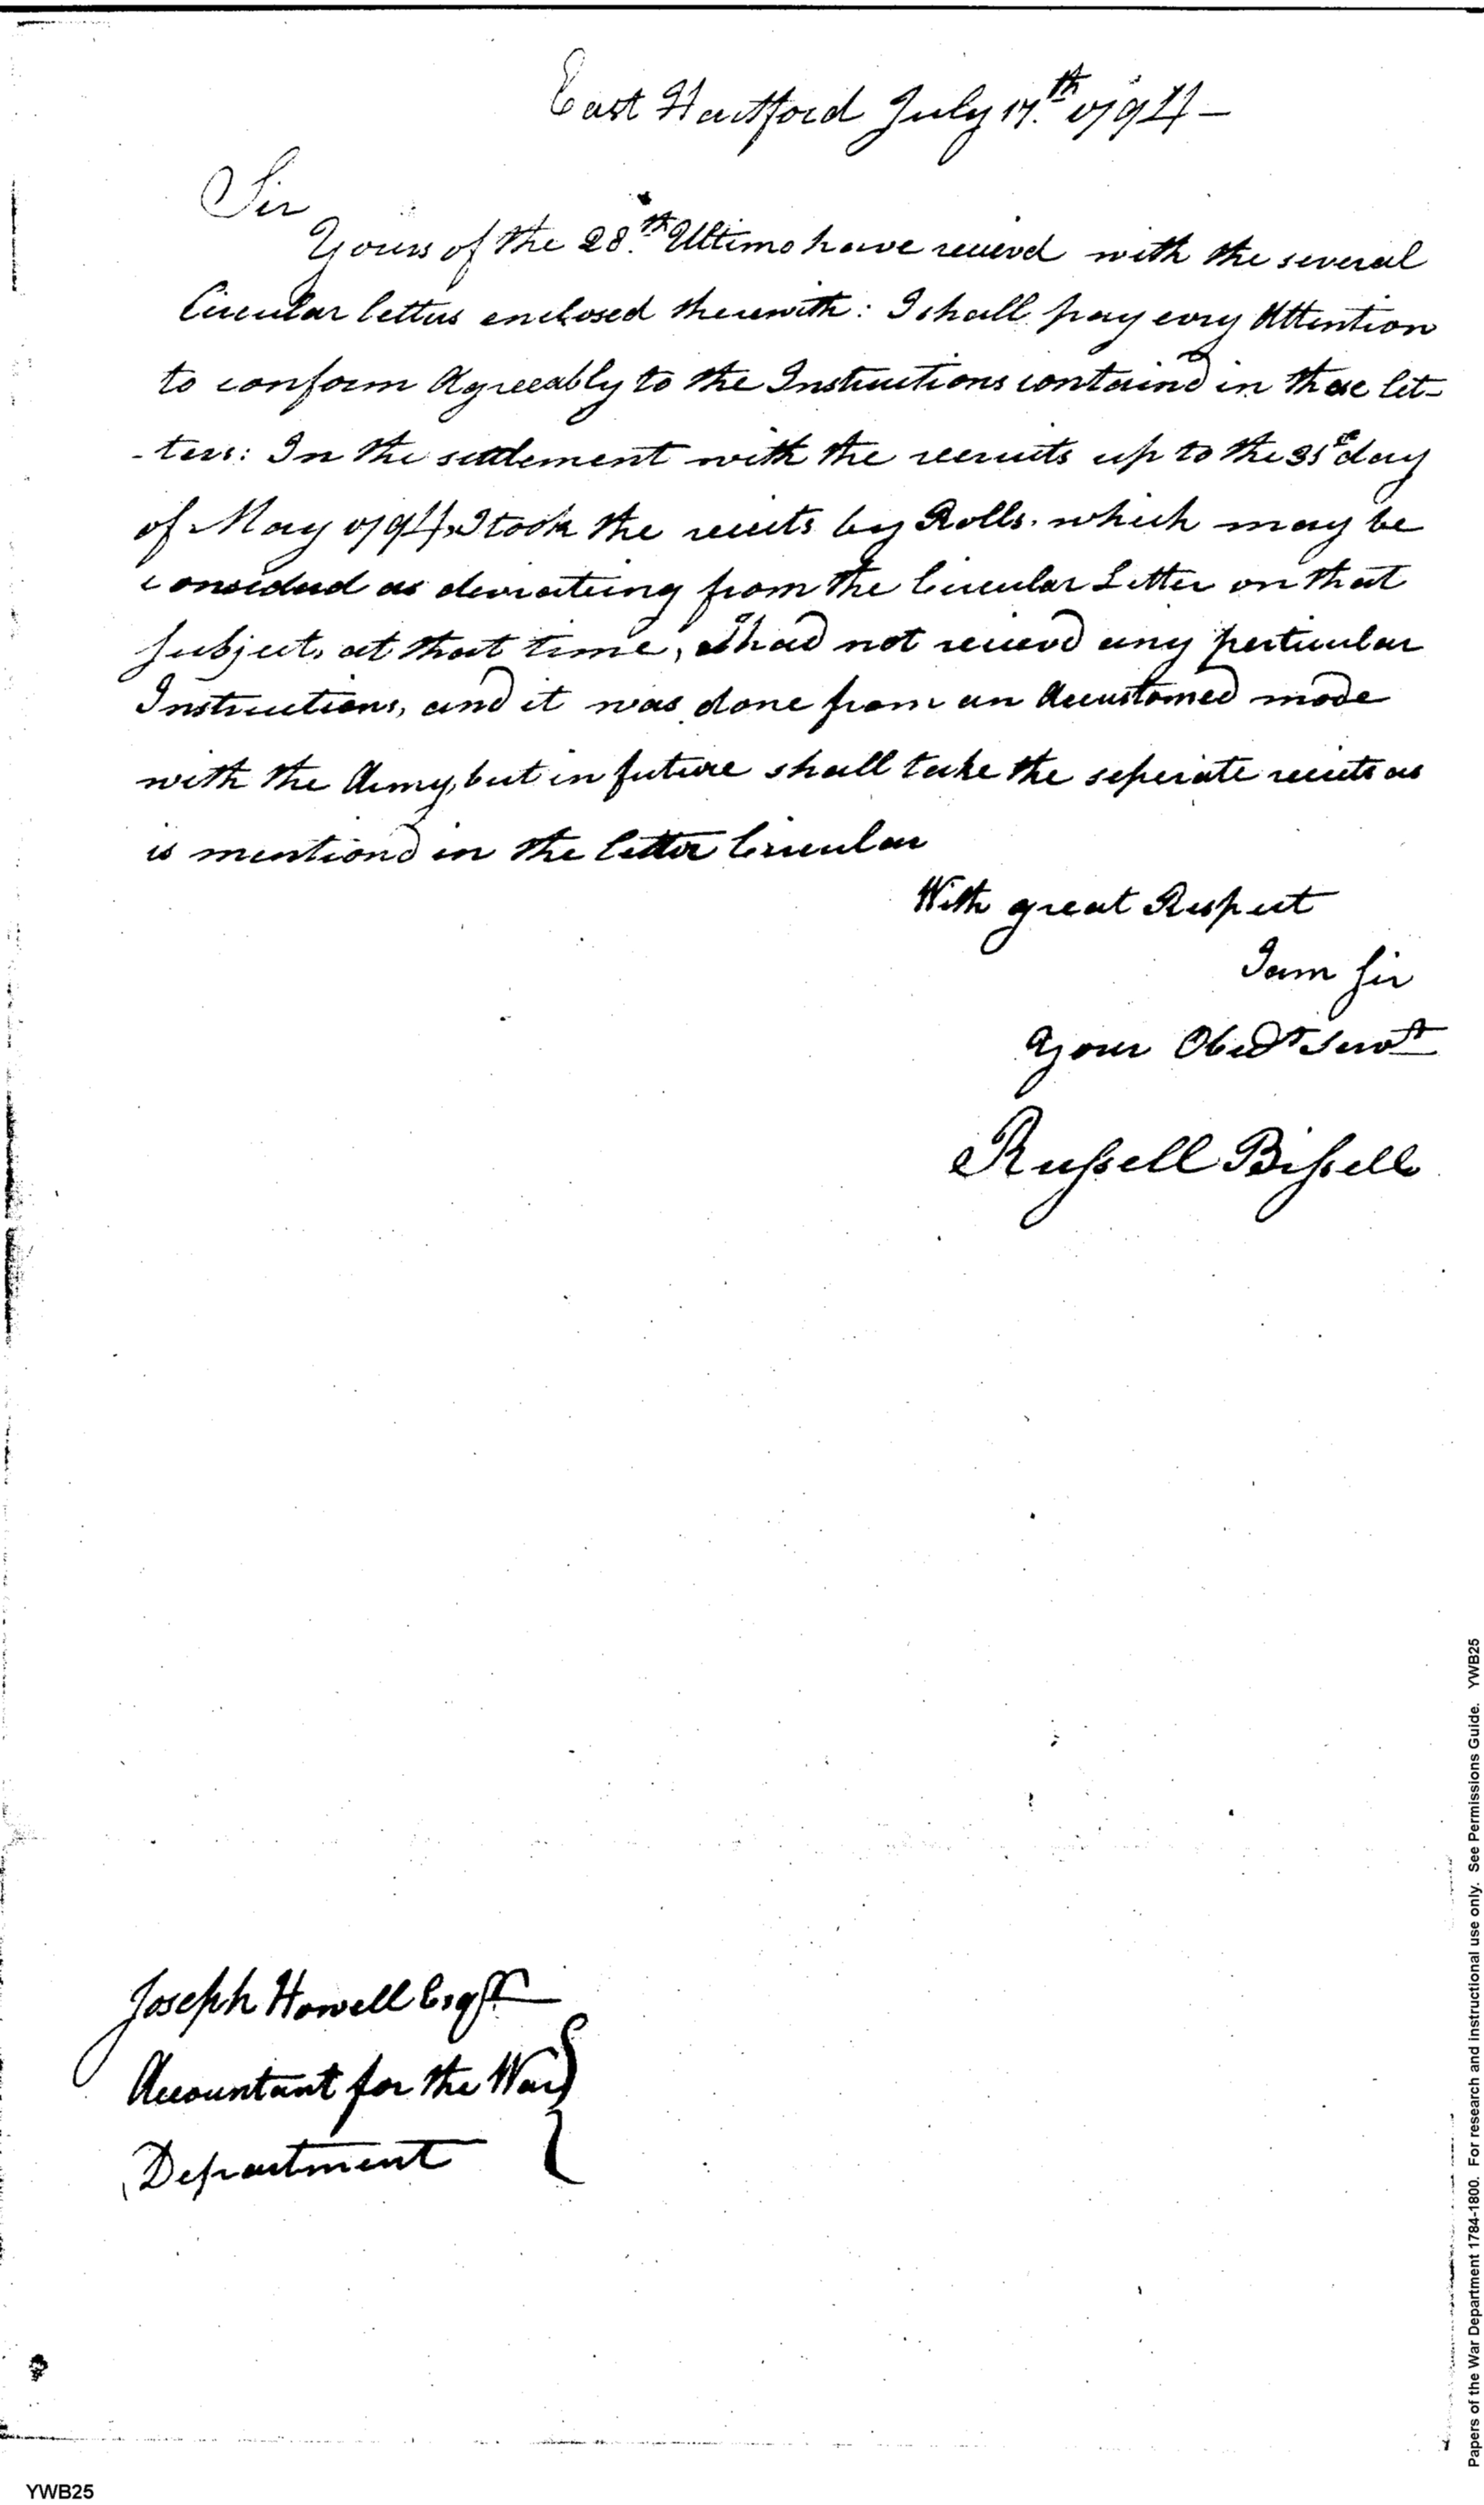 East Hartford July 17.th 1794 —
Sir
Yours of the 28.th Ultimo have recievd with the several
Circular letters enclosed therewith: I shall pay evry Attention
to conform Agreeably to the Instructions containd in those let-
-ters: In the settlement with the recruits up to the 31st day
of May 1794, I took the reciets by Rolls, which may be
considerd as deviating from the Circular Letter on that
subject, at that time, I had not recievd any perticular
Instructions, and it was done from an Accustomed mode
with the Army, but in future shall take the seperate reciets as
is mentiond in the letter Circular
With great Respect
I am Sir
Your Obedt Servt
Russell Bissell
Joseph Howell Esqr
Accountant for the War
Department
Papers of the War Department 1784-1800. For research and instructional use only. See Permissions Guide. YWB25
YWB25